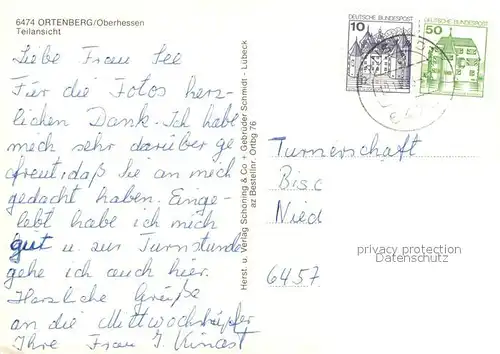 6474 ORTENBERG/Oberhessen
Teilansicht
Liebe Frau See
Für die Fotos herz-
lichen Dank. Ich habe
mich sehr darüber ge
freut, daß Sie an mich
gedacht haben. Einge-
lebt habe ich mich
gut u. zur Turnstunde
gehe ich auch hier.
Herzliche Grüße
an die Mittwochshüpfer
Ihre Frau J. Kinast
Herst. u. Verlag Schöning & Co + Gebrüder Schmidt - Lübeck
az Bestellnr. Ortbg 76
DEUTSCHE BUNDESPOST
10
DEUTSCHE BUNDESPOST
50
Turnerschaft
Bisc
Nied
privacy protection
Datenschutz
6457